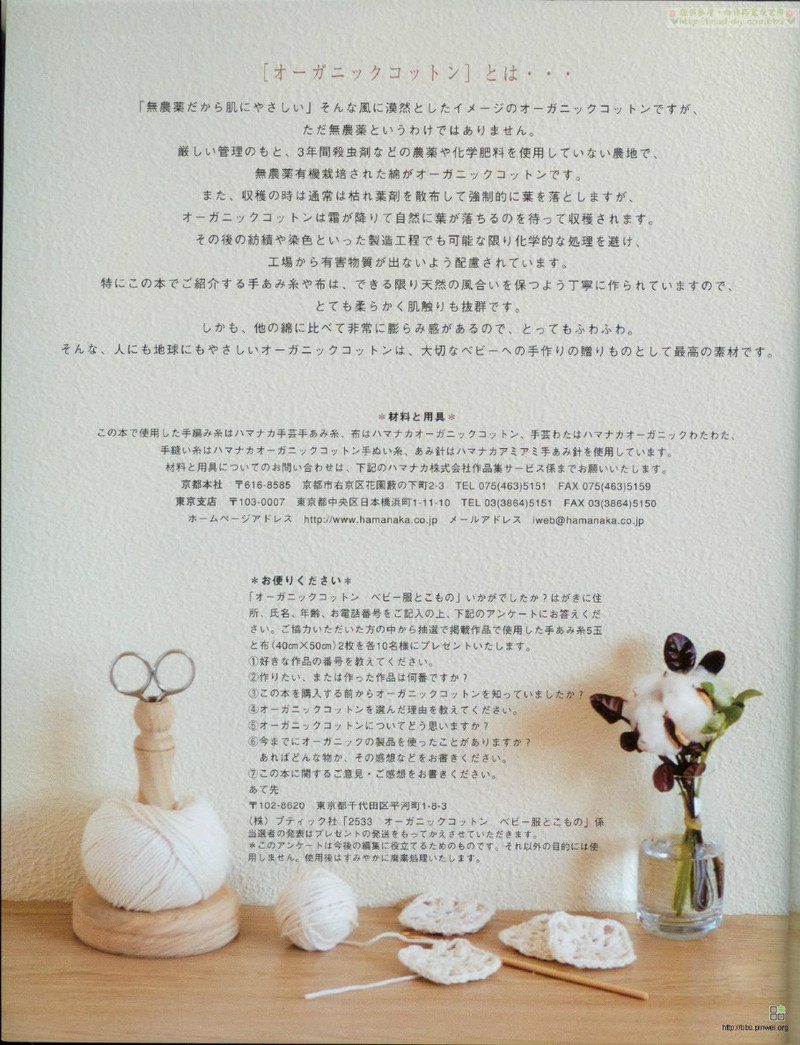 [オーガニックコットン]とは・・・
「無農薬だから肌にやさしい」そんな風に漠然としたイメージのオーガニックコットンですが、
ただ無農薬というわけではありません。
厳しい管理のもと、3年間殺虫剤などの農薬や化学肥料を使用していない農地で、
無農薬有機栽培された綿がオーガニックコットンです。
また、収穫の時は通常は枯れ葉剤を散布して強制的に葉を落としますが、
オーガニックコットンは霜が降りて自然に葉が落ちるのを待って収穫されます。
その後の紡績や染色といった製造工程でも可能な限り化学的な処理を避け、
工場から有害物質が出ないよう配慮されています。
特にこの本でご紹介する手あみ糸や布は、できる限り天然の風合いを保つよう丁寧に作られていますので、
とても柔らかく肌触りも抜群です。
しかも、他の綿に比べて非常に膨らみ感があるので、とってもふわふわ。
そんな、人にも地球にもやさしいオーガニックコットンは、大切なベビーへの手作りの贈りものとして最高の素材です。
＊材料と用具＊
この本で使用した手編み糸はハマナカ手芸手あみ糸、布はハマナカオーガニックコットン、手芸わたはハマナカオーガニックわたわた、
手縫い糸はハマナカオーガニックコットン手ぬい糸、あみ針はハマナカアミアミ手あみ針を使用しています。
材料と用具についてのお問い合わせは、下記のハマナカ株式会社作品集サービス係までお願いいたします。
京都本社　〒616-8585　京都市右京区花園薮の下町2-3　TEL 075(463)5151　FAX 075(463)5159
東京支店　〒103-0007　東京都中央区日本橋浜町1-11-10　TEL 03(3864)5151　FAX 03(3864)5150
ホームページアドレス　http://www.hamanaka.co.jp　メールアドレス　iweb@hamanaka.co.jp
＊お便りください＊
「オーガニックコットン　ベビー服とこもの」いかがでしたか？はがきに住
所、氏名、年齢、お電話番号をご記入の上、下記のアンケートにお答えくだ
さい。ご協力いただいた方の中から抽選で掲載作品で使用した手あみ糸5玉
と布(40㎝×50㎝)2枚を各10名様にプレゼントいたします。
①好きな作品の番号を教えてください。
②作りたい、または作った作品は何番ですか？
③この本を購入する前からオーガニックコットンを知っていましたか？
④オーガニックコットンを選んだ理由を教えてください。
⑤オーガニックコットンについてどう思いますか？
⑥今までにオーガニックの製品を使ったことがありますか？
あればどんな物か、その感想などをお書きください。
⑦この本に関するご意見・ご感想をお書きください。
あて先
〒102-8620　東京都千代田区平河町1-8-3
(株) ブティック社「2533　オーガニックコットン　ベビー服とこもの」係
当選者の発表はプレゼントの発送をもってかえさせていただきます。
＊このアンケートは今後の編集に役立てるためのものです。それ以外の目的には使
用しません。使用後はすみやかに廃棄処理いたします。
http://bbs.pinwei.org